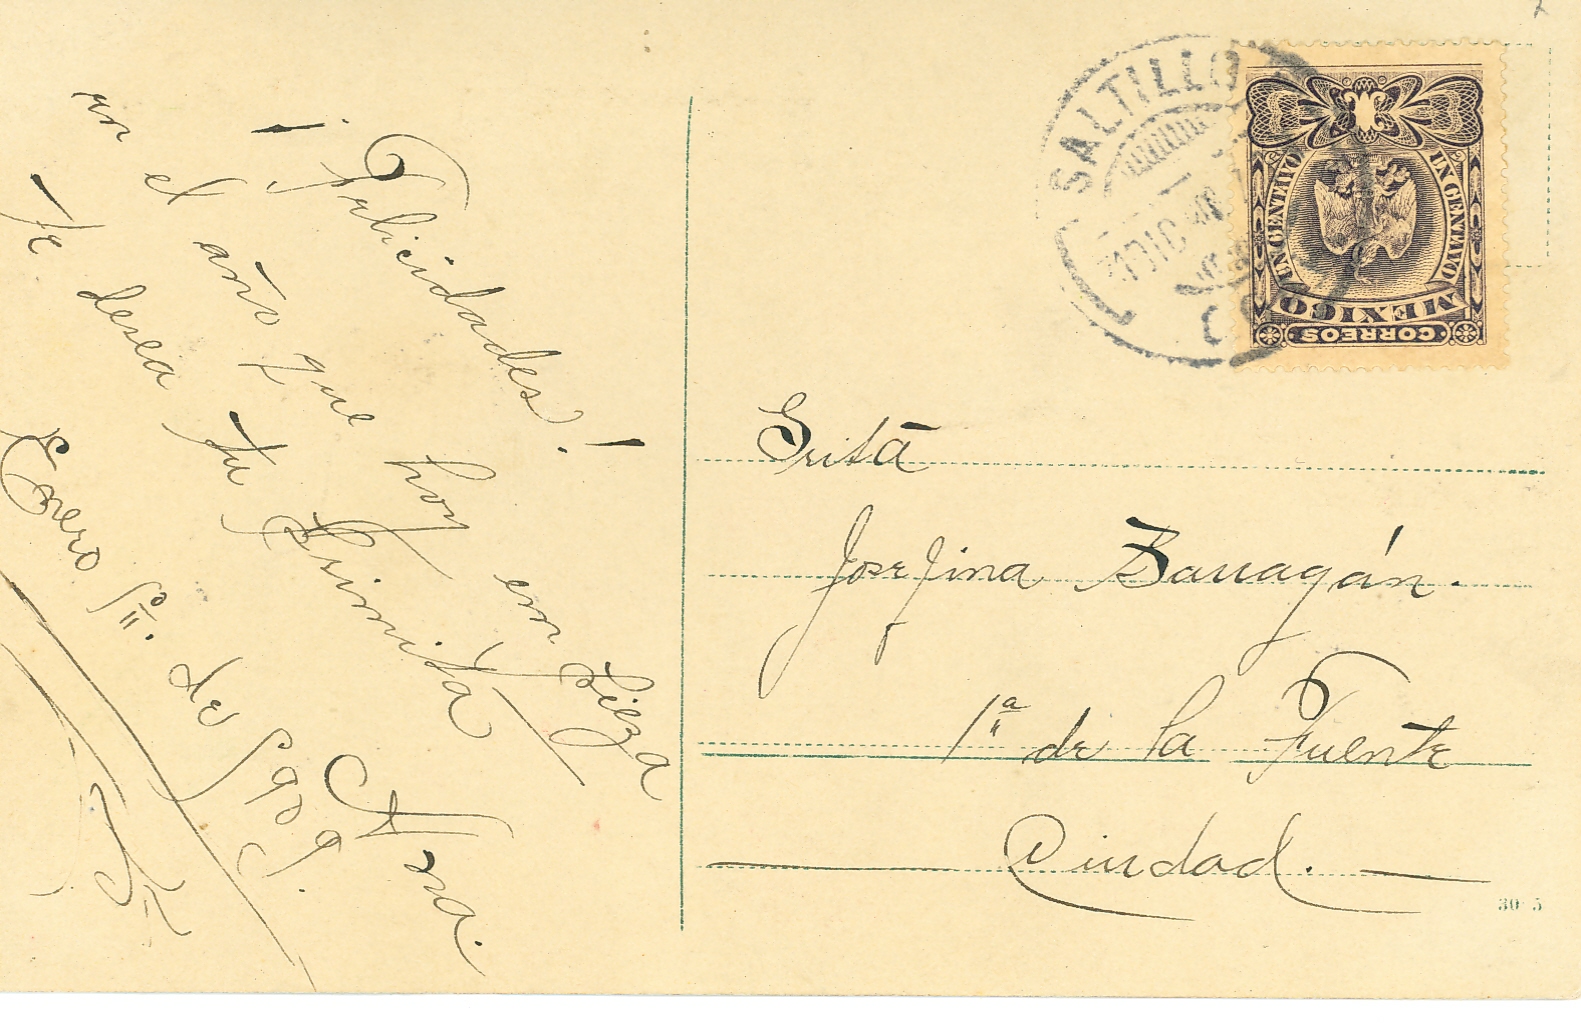 ¡Felicidades!
en el año que hoy empieza
te desea tu Primita
Nra.
Enero 1º. de 1909.
SALTILLO
DIC
CO
UN CENTAVO
UN CENTAVO
MEXICO
CORREOS
Srita
Josefina Barragán.
1ª de la Fuente
Ciudad.
30 5